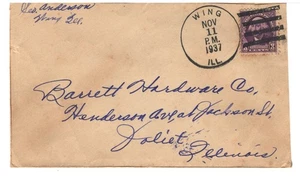 Geo. Anderson
Wing Ill.
WING
NOV
11
P.M.
1937
ILL.
Barrett Hardware Co.
Henderson Ave. at Jackson St.
Joliet,
Illinois.